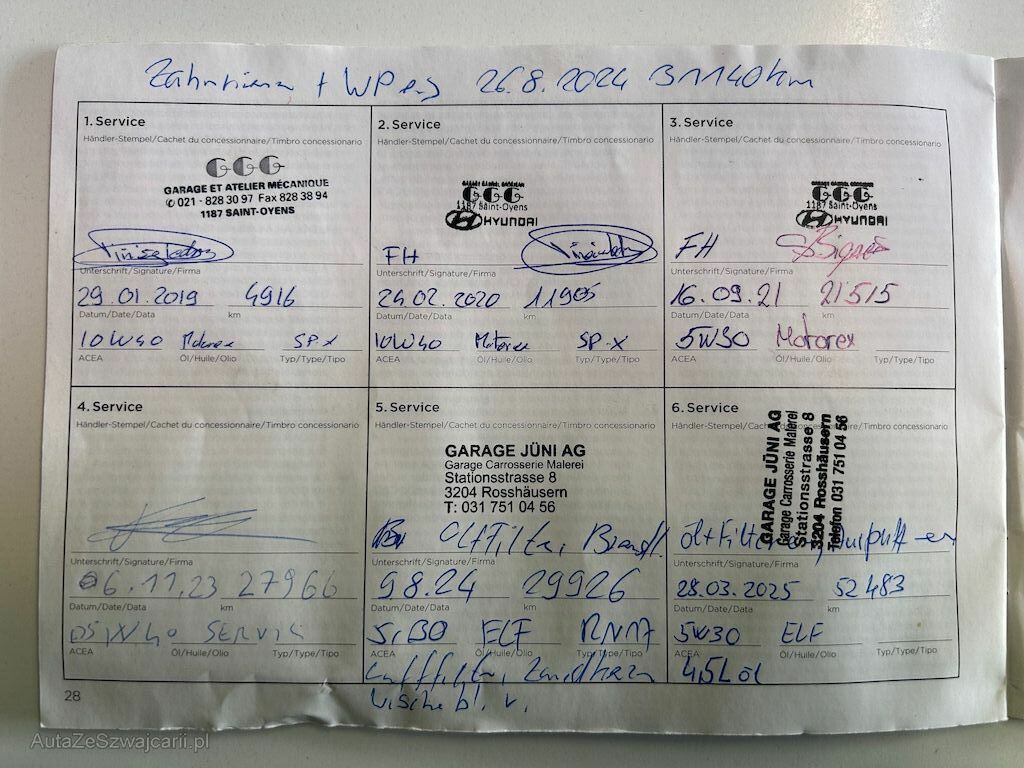 Zahnriemen + WP ers 26.8.2024 31140km
1. Service
Händler-Stempel/Cachet du concessionnaire/Timbro concessionario
GGG
GARAGE ET ATELIER MÉCANIQUE
021 - 828 30 97 Fax 828 38 94
1187 SAINT-OYENS
Unterschrift/Signature/Firma
29.01.2019 4916
Datum/Date/Data km
10W40 Motorex SP-X
ACEA Öl/Huile/Olio Typ/Type/Tipo
2. Service
Händler-Stempel/Cachet du concessionnaire/Timbro concessionario
GGG
1187 Saint-Oyens
HYUNDAI
FH
Unterschrift/Signature/Firma
24.02.2020 11905
Datum/Date/Data km
10W40 Motorex SP-X
ACEA Öl/Huile/Olio Typ/Type/Tipo
3. Service
Händler-Stempel/Cachet du concessionnaire/Timbro concessionario
GGG
1187 Saint-Oyens
HYUNDAI
FH
Unterschrift/Signature/Firma
16.09.21 21515
Datum/Date/Data km
5W30 Motorex
ACEA Öl/Huile/Olio Typ/Type/Tipo
4. Service
Händler-Stempel/Cachet du concessionnaire/Timbro concessionario
Unterschrift/Signature/Firma
06.11.23 27966
Datum/Date/Data km
SERVIS
ACEA Öl/Huile/Olio Typ/Type/Tipo
5. Service
Händler-Stempel/Cachet du concessionnaire/Timbro concessionario
GARAGE JÜNI AG
Garage Carrosserie Malerei
Stationsstrasse 8
3204 Rosshäusern
T: 031 751 04 56
Öl+Filter,
Unterschrift/Signature/Firma
9.8.24 29926
Datum/Date/Data km
5W30 ELF
ACEA Öl/Huile/Olio Typ/Type/Tipo
Luftfilter, Zündkerzen
6. Service
Händler-Stempel/Cachet du concessionnaire/Timbro concessionario
GARAGE JÜNI AG
Garage Carrosserie Malerei
Stationsstrasse 8
3204 Rosshäusern
Telefon 031 751 04 56
Öl+Filter
Unterschrift/Signature/Firma
28.03.2025 52483
Datum/Date/Data km
5W30 ELF
ACEA Öl/Huile/Olio Typ/Type/Tipo
4,5L öl
28
AutaZeSzwajcarii.pl